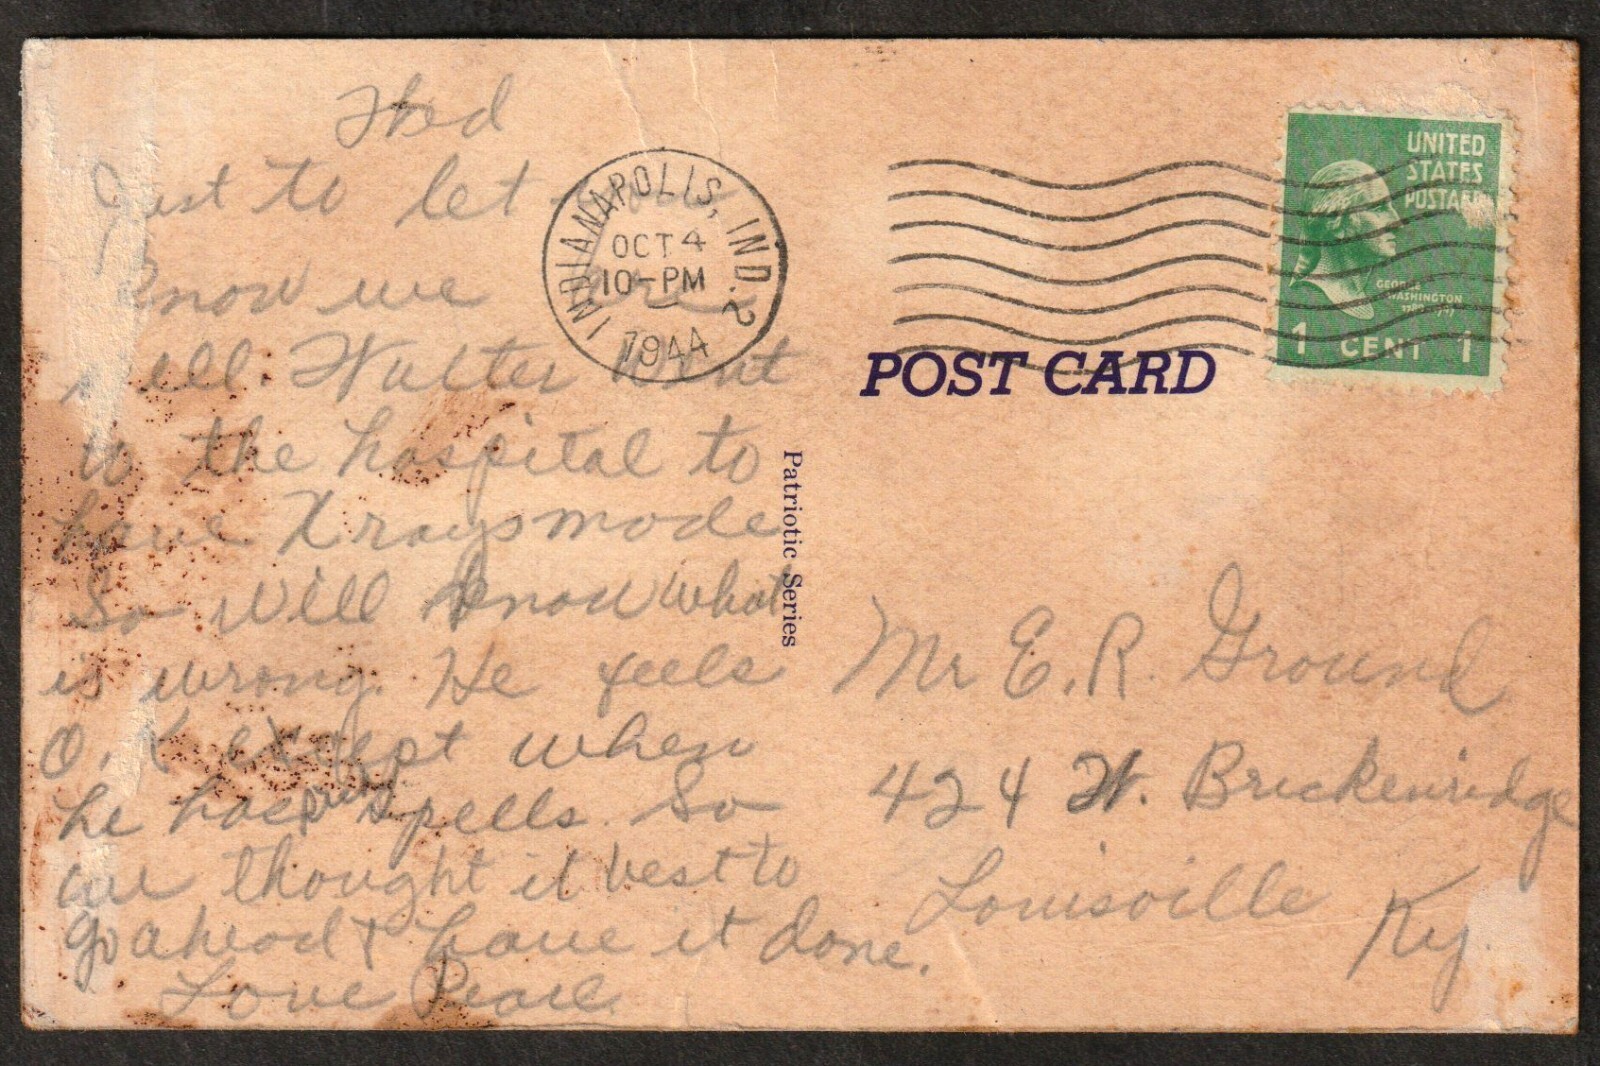 Wed
Just to let you
know we are
well. Walter went
to the hospital to
have Xrays made
So will know what
is wrong. He feels
O.K except when
he has spells. So
we thought it best to
go ahead & have it done.
Love Pearl
INDIANAPOLIS, IND. 2
OCT 4
10-PM
1944
UNITED
STATES
POSTAGE
GEORGE
WASHINGTON
1789-1797
1 CENT 1
POST CARD
Patriotic Series
Mr E. R. Ground
424 W. Brickenridge
Louisville Ky.